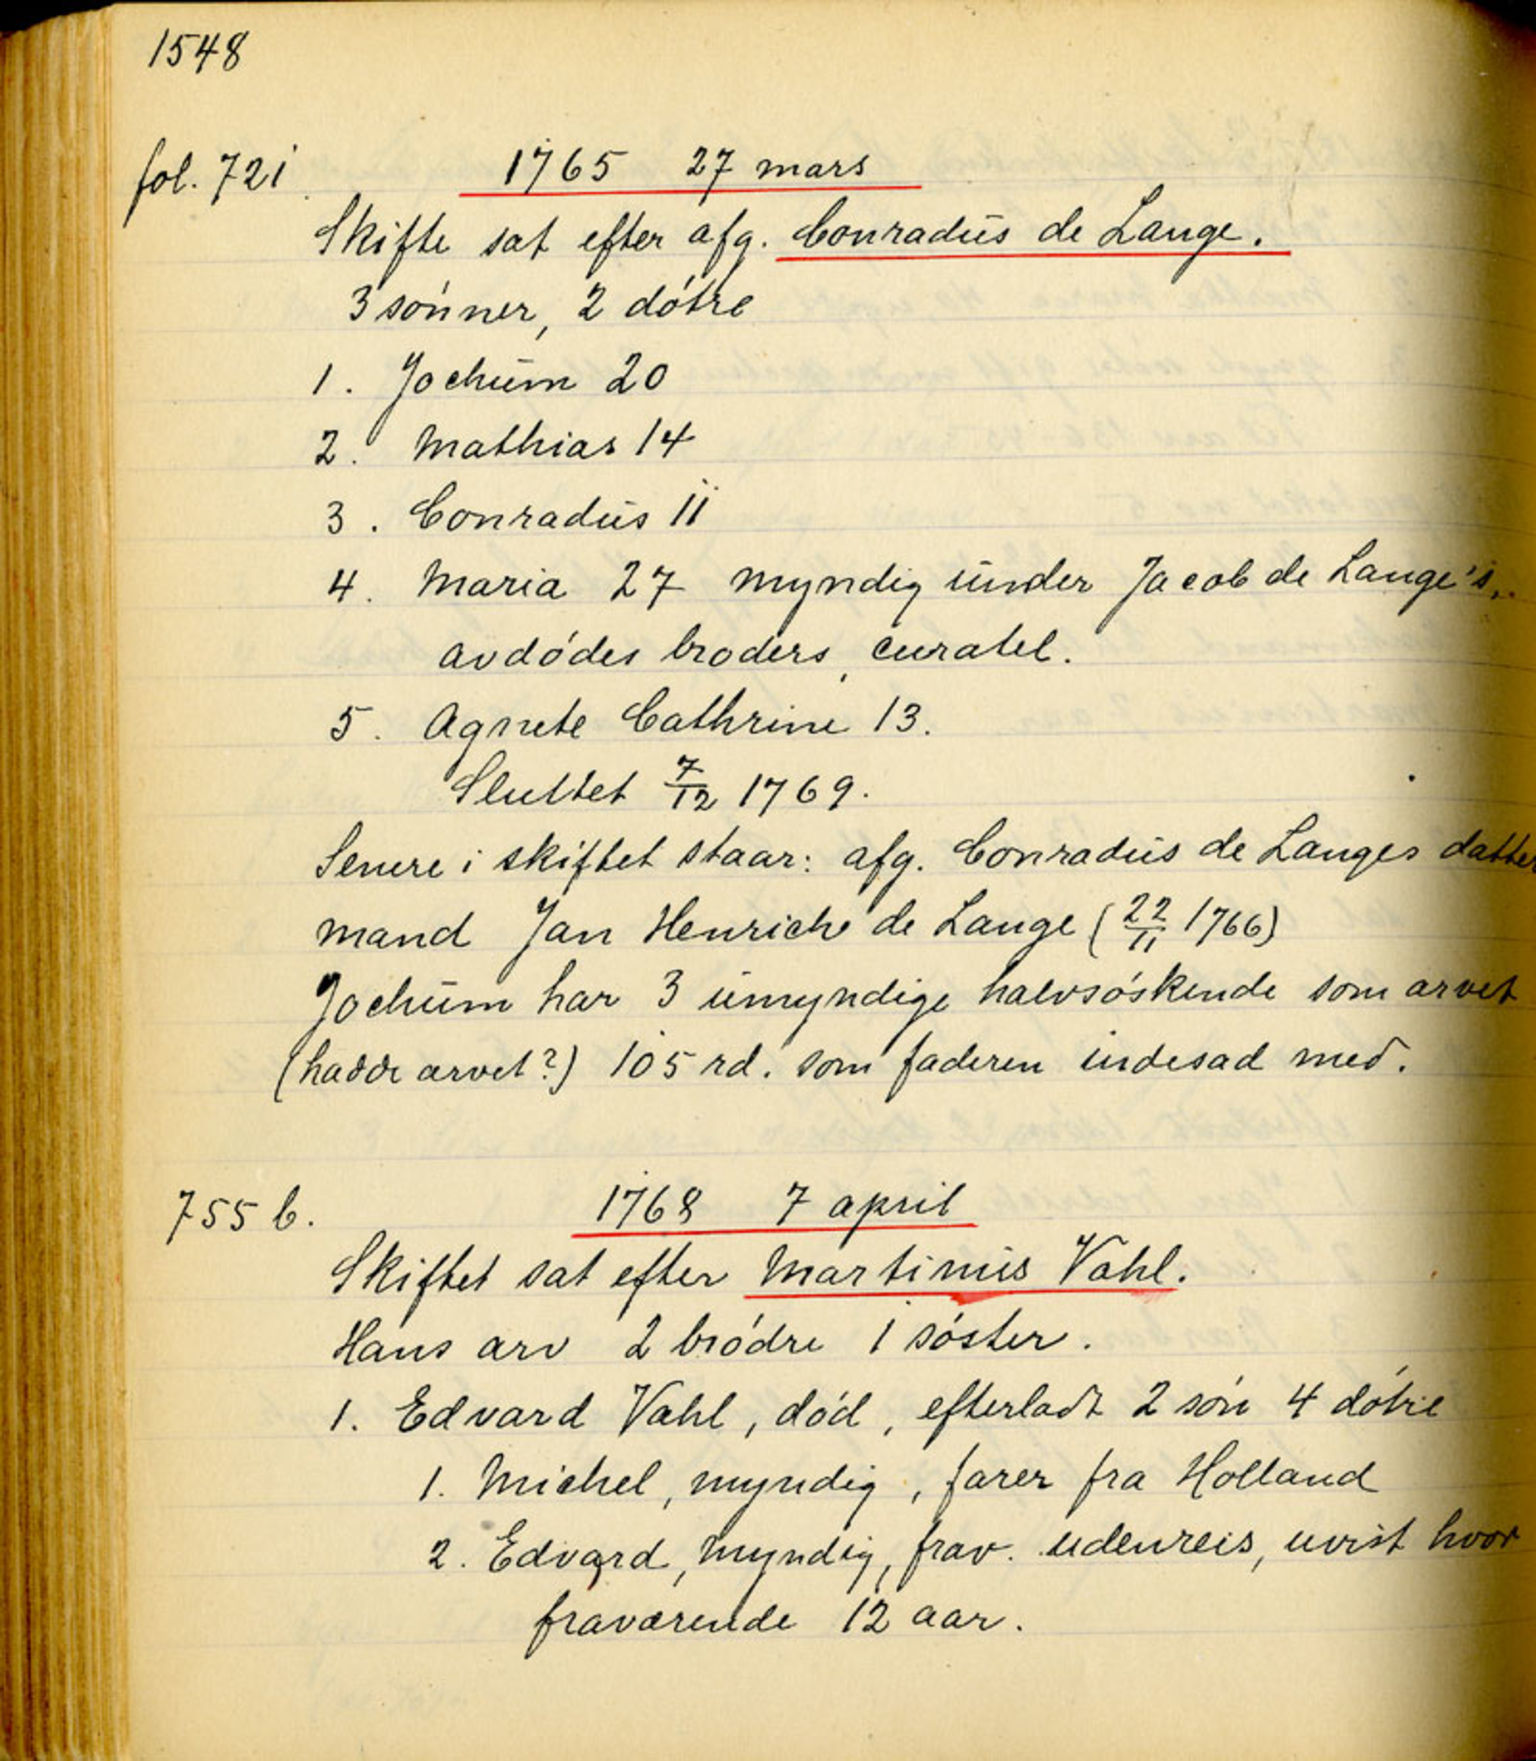 1548
fol. 721 1765 27 mars
Skifte sat efter afg. Conradus de Lange.
3 sønner, 2 døtre
1. Jochum 20
2. Mathias 14
3. Conradus 11
4. Maria 27 myndig under Jacob de Lange's,
avdødes broders, curatel.
5. Agnete Cathrine 13.
Sluttet 7/12 1769.
Senere i skiftet staar: afg. Conradus de Langes datter
mand Jan Henrich de Lange (22/11 1766)
Jochum har 3 umyndige halvsøskende som arvet
(hadde arvet?) 105 rd. som faderen indesad med.
755 b. 1768 7 april
Skiftet sat efter Martinus Vahl.
Hans arv 2 brødre 1 søster.
1. Edvard Vahl, død, efterladt 2 søn 4 døtre
1. Michel, myndig, farer fra Holland
2. Edvard, myndig, frav. udenreis, uvist hvor
fraværende 12 aar.